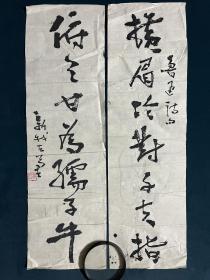 横眉冷对千夫指
鲁迅诗句
俯首甘为孺子牛